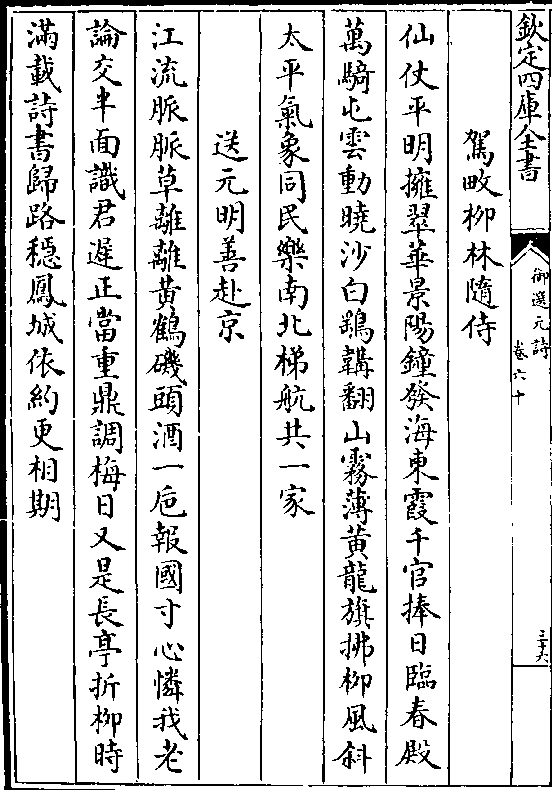 欽定四庫全書
御選元詩
卷六十
三十六
駕畋柳林隨侍
仙仗平明擁翠華景陽鐘發海東霞千官捧日臨春殿
萬騎屯雲動曉沙白鷂韝翻山霧薄黄龍旗拂柳風斜
太平氣象同民樂南北梯航共一家
送元明善赴京
江流脈脈草離離黄鶴磯頭酒一巵報國寸心憐我老
論交半面識君遲正當重鼎調梅日又是長亭折柳時
滿載詩書歸路穩鳳城依約更相期